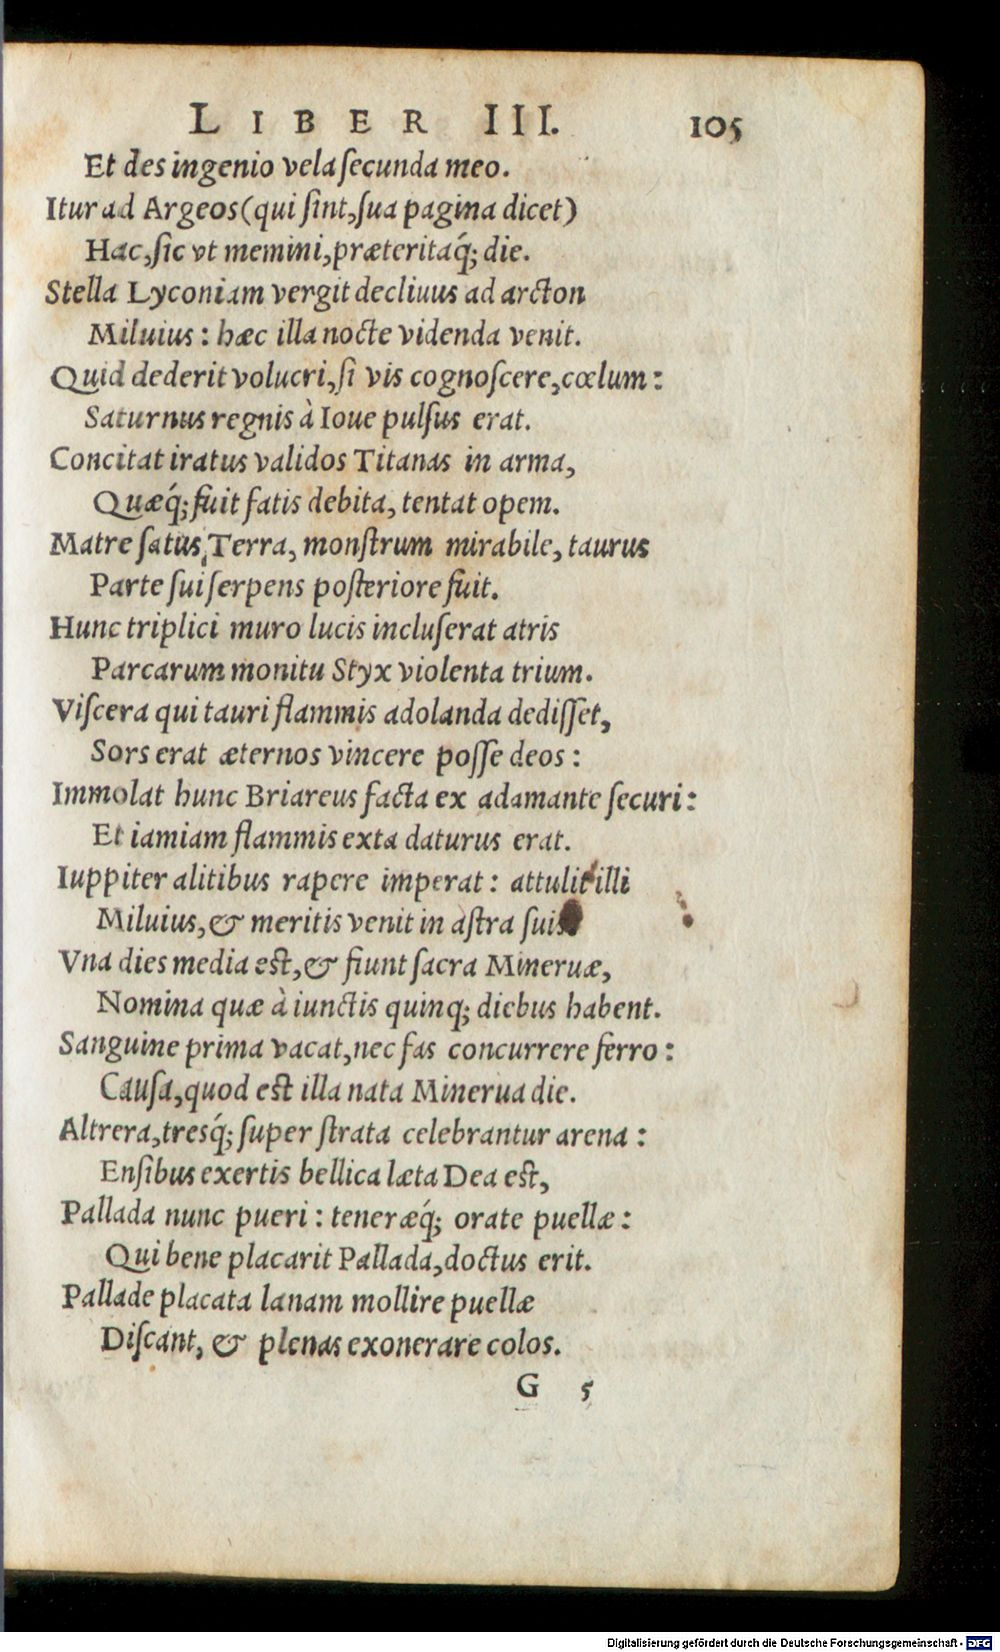 LIBER III. 105
Et des ingenio vela ſecunda meo.
Itur ad Argeos (qui ſint, ſua pagina dicet)
Hac, ſic vt memini, præteritaq́; die.
Stella Lyconiam vergit decliuus ad arcton
Miluius: hæc illa nocte videnda venit.
Quid dederit volucri, ſi vis cognoſcere, cœlum:
Saturnus regnis à Ioue pulſus erat.
Concitat iratus validos Titanas in arma,
Quæq́; fuit fatis debita, tentat opem.
Matre ſatus Terra, monſtrum mirabile, taurus
Parte ſui ſerpens poſteriore fuit.
Hunc triplici muro lucis incluſerat atris
Parcarum monitu Styx violenta trium.
Viſcera qui tauri flammis adolanda dediſſet,
Sors erat æternos vincere poſſe deos:
Immolat hunc Briareus facta ex adamante ſecuri:
Et iamiam flammis exta daturus erat.
Iuppiter alitibus rapere imperat: attulit illi
Miluius, & meritis venit in aſtra ſuis
Vna dies media est, & fiunt ſacra Mineruæ,
Nomina quæ à iunctis quinq; diebus habent.
Sanguine prima vacat, nec fas concurrere ferro:
Cauſa, quod est illa nata Minerua die.
Altrera, tresq́; ſuper ſtrata celebrantur arena:
Enſibus exertis bellica læta Dea est,
Pallada nunc pueri: teneræq́; orate puellæ:
Qui bene placarit Pallada, doctus erit.
Pallade placata lanam mollire puellæ
Diſcant, & plenas exonerare colos.
G 5
Digitalisierung gefördert durch die Deutsche Forschungsgemeinschaft - DFG